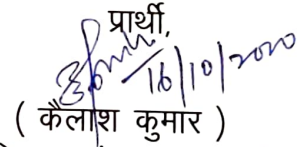 प्रार्थी,
16/10/2020
( कैलाश कुमार )